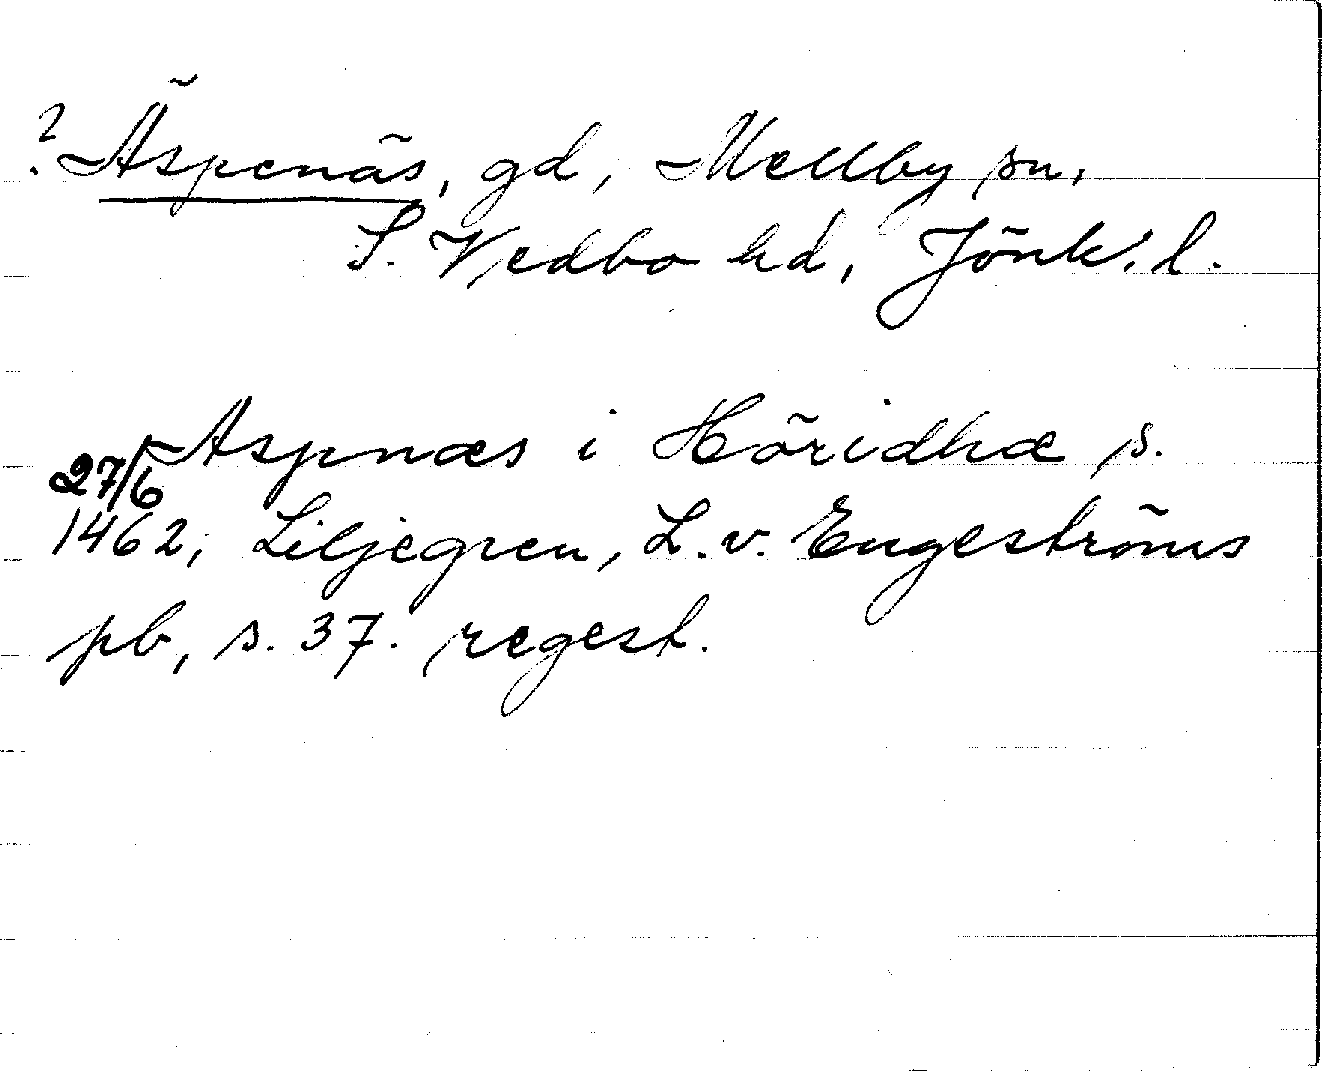 ? Äspenäs, gd, Mellby sn,
S. Vedbo hd, Jönk. l.
Aspnæs i Höridhæ s.
27/6
1462, Liljegren, L. v. Engeströms
pb, s. 37. regest.